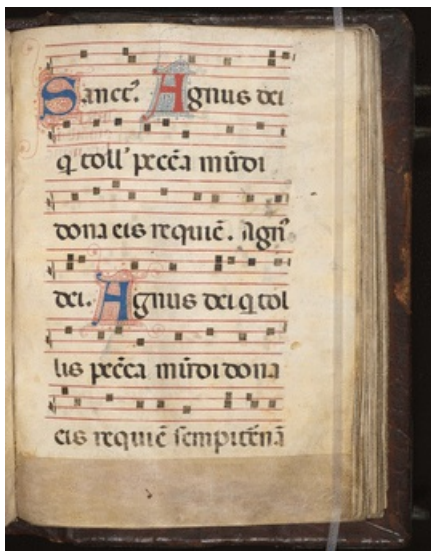 Sanct⁹. Agnus dei
q̄ toll' pecc̄a mūdi
dona eis requiē. Agn⁹
dei. Agnus dei q̄ tol
lis pecc̄a mūdi dona
eis requiē sempit̄nā